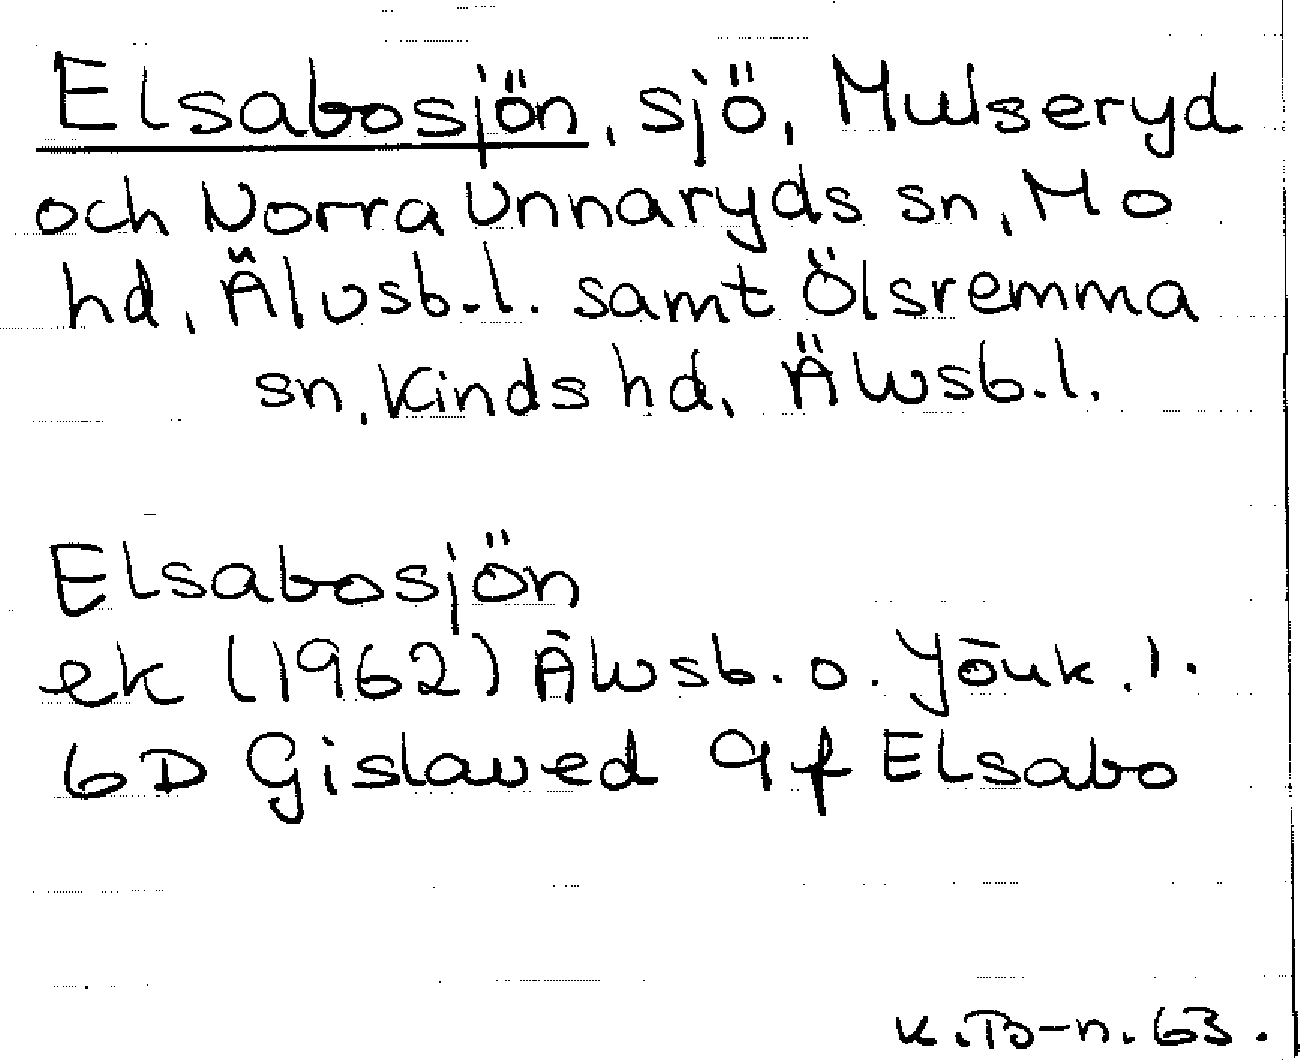 Elsabosjön, sjö, Mulseryd
och Norra Unnaryds sn, Mo
hd, Älvsb.l. samt Ölsremma
sn, Kinds hd, Älvsb.l.
Elsabosjön
ek (1962) Älvsb. o. Jönk. l.
6D Gislaved 9f Elsabo
K.To-n. 63.